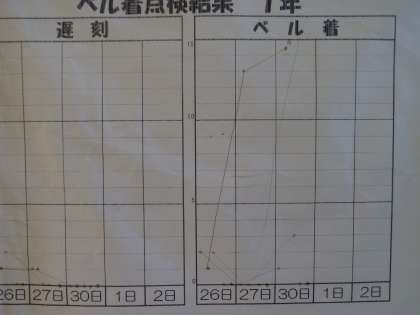 ベル着点検結果 1年
遅刻
ベル着
15
10
5
0
26日 27日 30日 1日 2日
26日 27日 30日 1日 2日